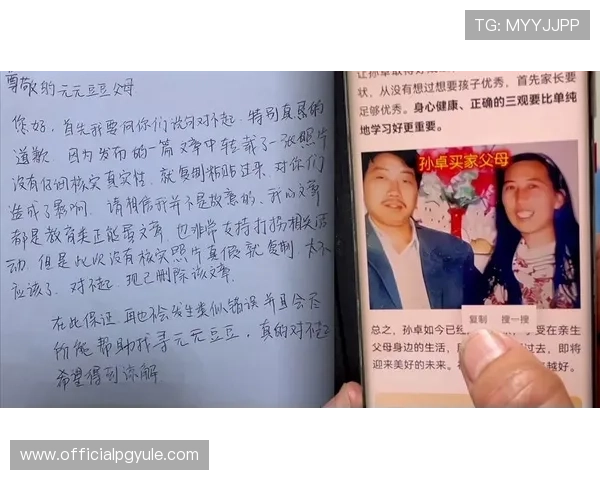 TG: MYYJJPP
尊敬的元元豆豆父母
您好,首先我要向你们说句对不起,特别真恳的
道歉 因为发布的一篇文章中转载了一张照片
没有仔细核实真实性,就复制粘贴过来,对你们
造成了影响,请相信我并不是故意的,我的文章
都是教育类正能量文章,也非常支持打拐相关活
动,但是此次没有核实照片真假就复制,太不
应该了,对不起,现已删除该文章.
在此保证,再也不会发生类似错误并且会尽
所能帮助找寻元元豆豆,真的对不起
希望得到谅解
让孙卓取得好成
状,从没有想过想要孩子优秀,首先家长要
足够优秀。身心健康、正确的三观要比单纯
地学习好更重要。
孙卓买家父母
复制 搜一搜
总之,孙卓如今已经 享受在亲生
父母身边的生活, 过去,即将
迎来美好的未来。 越好。
www.officialpgyule.com